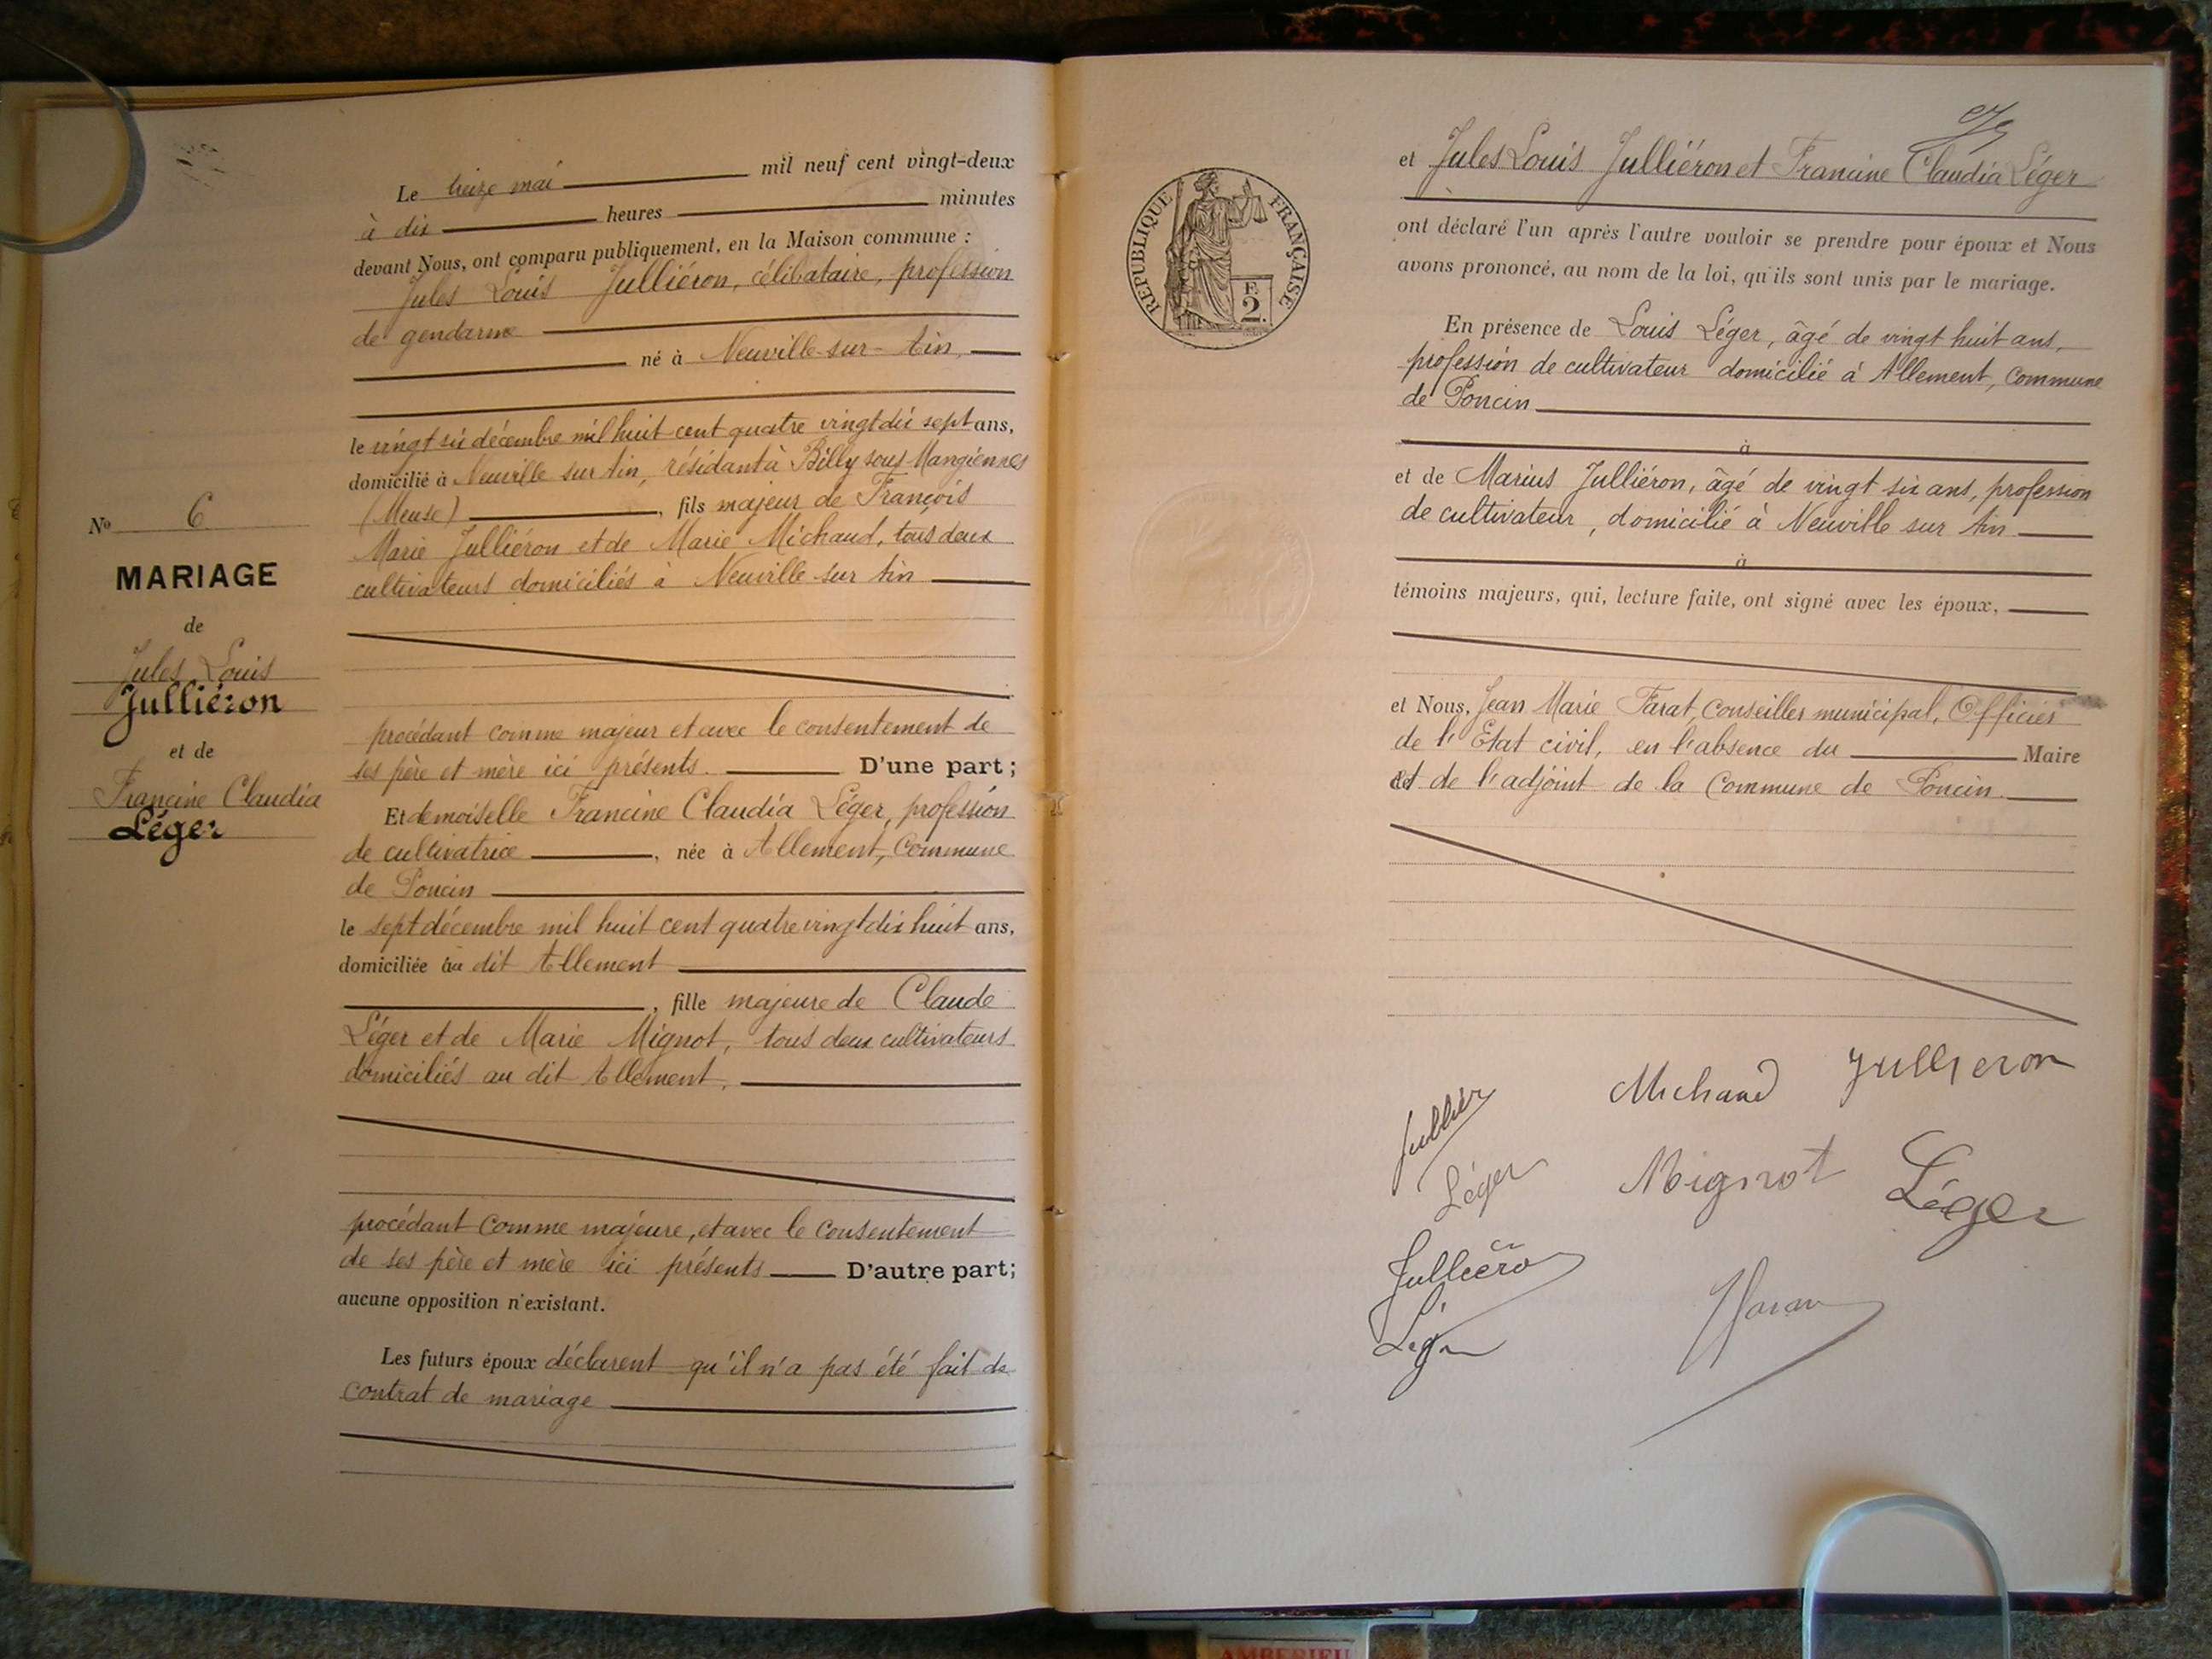 Le treize mai mil neuf cent vingt-deux
à dix heures minutes
devant Nous, ont comparu publiquement, en la Maison commune :
Jules Louis Julliéron, célibataire, profession
de gendarme
né à Neuville-sur-Ain,
le vingt six décembre mil huit cent quatre vingt dix sept ans,
domicilié à Neuville sur Ain, résidant à Billy sous Mangiennes
(Meuse), fils majeur de François
Marie Julliéron et de Marie Michaud, tous deux
cultivateurs domiciliés à Neuville sur Ain
procédant comme majeur et avec le consentement de
ses père et mère ici présents. D'une part;
Et demoiselle Francine Claudia Léger, profession
de cultivatrice, née à Allement, Commune
de Poncin
le sept décembre mil huit cent quatre vingt dix huit ans,
domiciliée au dit Allement
, fille majeure de Claude
Léger et de Marie Mignot, tous deux cultivateurs
domiciliés au dit Allement,
procédant comme majeure, et avec le consentement
de ses père et mère ici présents D'autre part;
aucune opposition n'existant.
Les futurs époux déclarent qu'il n'a pas été fait de
contrat de mariage
No 6
MARIAGE
de
Jules Louis
Julliéron
et de
Francine Claudia
Léger
RÉPUBLIQUE FRANÇAISE
F.
2.
et Jules Louis Julliéron et Francine Claudia Léger
ont déclaré l'un après l'autre vouloir se prendre pour époux et Nous
avons prononcé, au nom de la loi, qu'ils sont unis par le mariage.
En présence de Louis Léger, âgé de vingt huit ans,
profession de cultivateur domicilié à Allement, Commune
de Poncin
à
et de Marius Julliéron, âgé de vingt six ans, profession
de cultivateur, domicilié à Neuville sur Ain
à
témoins majeurs, qui, lecture faite, ont signé avec les époux,
et Nous, Jean Marie Farat, Conseiller municipal, Officier
de l'Etat civil, en l'absence du Maire
et de l'adjoint de la Commune de Poncin.
Michaud Jullieron
Léger Mignot Léger
AMBERIEU